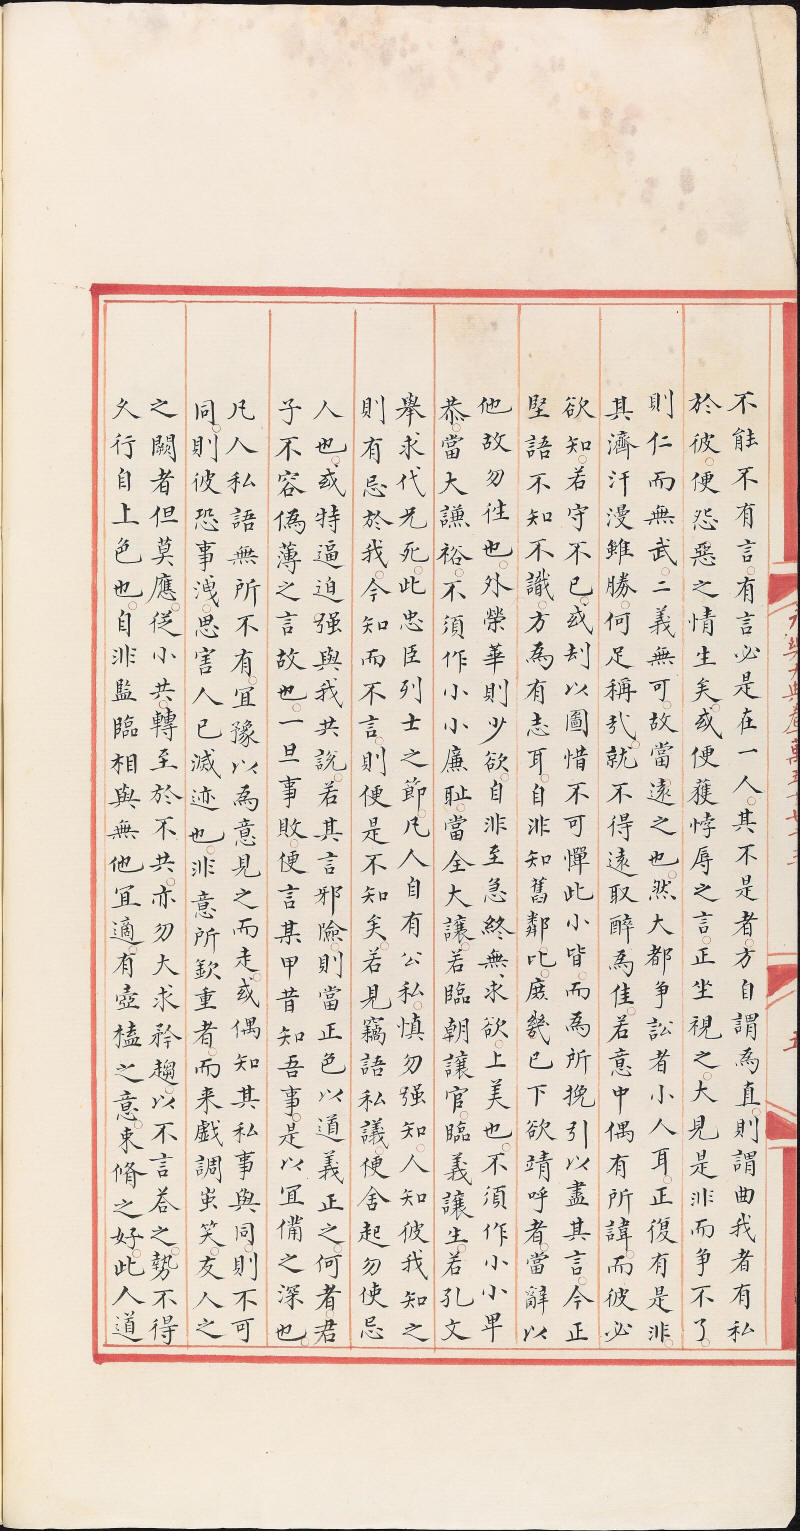 不能不有言有言必是在一人其不是者方自謂為直則謂曲我者有私
於彼便怨惡之情生矣或便獲悖辱之言正坐視之大見是非而爭不了
則仁而無武二義無可故當遠之也然大都爭訟者小人耳正復有是非
其濟汗漫雖勝何足稱哉就不得遠取醉為佳若意中偶有所諱而彼必
欲知若守不已或刦以圖惜不可憚此小皆而為所挽引以盡其言今正
堅語不知不識方為有志耳自非知舊鄰比庶幾已下欲靖呼者當辭以
他故勿徃也外榮華則少欲自非至急終無求欲上美也不須作小小卑
恭當大謙裕不須作小小廉耻當全大讓若臨朝讓官臨義讓生若孔文
舉求代兄死此忠臣列士之節凡人自有公私慎勿强知人知彼我知之
則有忌於我今知而不言則便是不知矣若見竊語私議便舍起勿使忌
人也或特逼迫强與我共說若其言邪險則當正色以道義正之何者君
子不容偽薄之言故也一旦事敗便言某甲昔知吾事是以冝備之深也
凡人私語無所不有冝豫以為意見之而走或偶知其私事與同則不可
同則彼恐事洩思害人已滅迹也非意所欽重者而来戲調蚩笑友人之
之闕者但莫應從小共轉至於不共亦勿大求矜趨以不言荅之勢不得
久行自上色也自非監臨相與無他冝適有壺榼之意束脩之好此人道